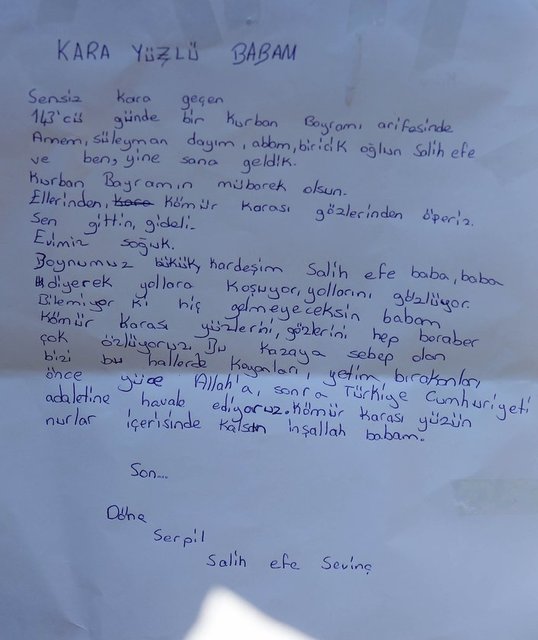 KARA YÜZLÜ BABAM
Sensiz kara geçen
143'cü günde bir Kurban Bayramı arifesinde
Annem, süleyman dayım, ablam, biricik oğlun Salih efe
ve ben, yine sana geldik.
Kurban Bayramın mübarek olsun.
Ellerinden, kömür karası gözlerinden öperiz.
Sen gittin, gideli.
Evimiz soğuk.
Boynumuz bükük, kardeşim Salih efe baba, baba
diyerek yollara koşuyor, yollarını gözlüyor.
Bilemiyor ki hiç gelmeyeceksin babam
Kömür karası yüzlerini, gözlerini hep beraber
çok özlüyoruz. Bu kazaya sebep olan
bizi bu hallerde koyanları, yetim bırakanları,
önce yüce Allah'a, sonra Türkiye Cumhuriyeti
adaletine havale ediyoruz. Kömür karası yüzün
nurlar içerisinde kalsın inşallah babam.
Son...
Döne
Serpil
Salih efe Sevinç